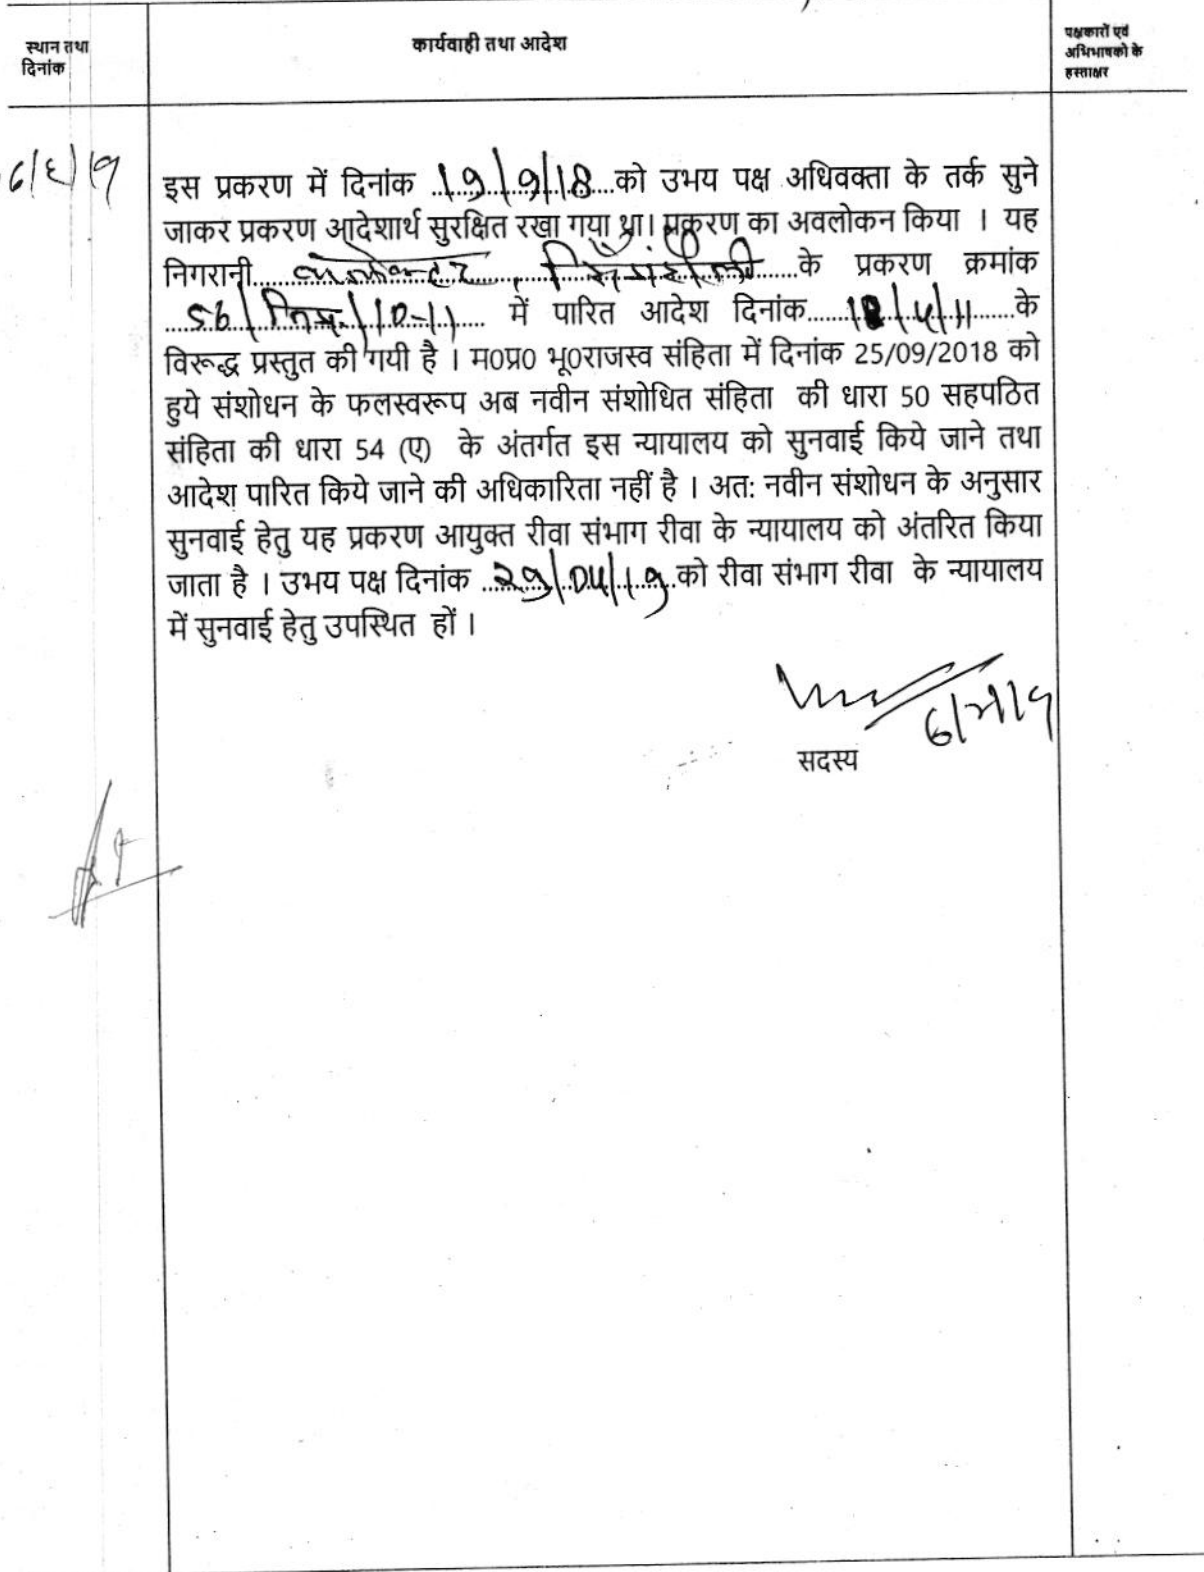 स्थान तथा
दिनांक
कार्यवाही तथा आदेश
पक्षकारों एवं
अभिभाषको के
हस्ताक्षर
इस प्रकरण में दिनांक 19/9/18 को उभय पक्ष अधिवक्ता के तर्क सुने
जाकर प्रकरण आदेशार्थ सुरक्षित रखा गया था। प्रकरण का अवलोकन किया । यह
निगरानी कलेक्टर, सिंगरौली के प्रकरण क्रमांक
56/निग./10-11 में पारित आदेश दिनांक /4/11 के
विरूद्ध प्रस्तुत की गयी है । म0प्र0 भू0राजस्व संहिता में दिनांक 25/09/2018 को
हुये संशोधन के फलस्वरूप अब नवीन संशोधित संहिता की धारा 50 सहपठित
संहिता की धारा 54 (ए) के अंतर्गत इस न्यायालय को सुनवाई किये जाने तथा
आदेश पारित किये जाने की अधिकारिता नहीं है । अत: नवीन संशोधन के अनुसार
सुनवाई हेतु यह प्रकरण आयुक्त रीवा संभाग रीवा के न्यायालय को अंतरित किया
जाता है । उभय पक्ष दिनांक 29/04/19 को रीवा संभाग रीवा के न्यायालय
में सुनवाई हेतु उपस्थित हों ।
सदस्य